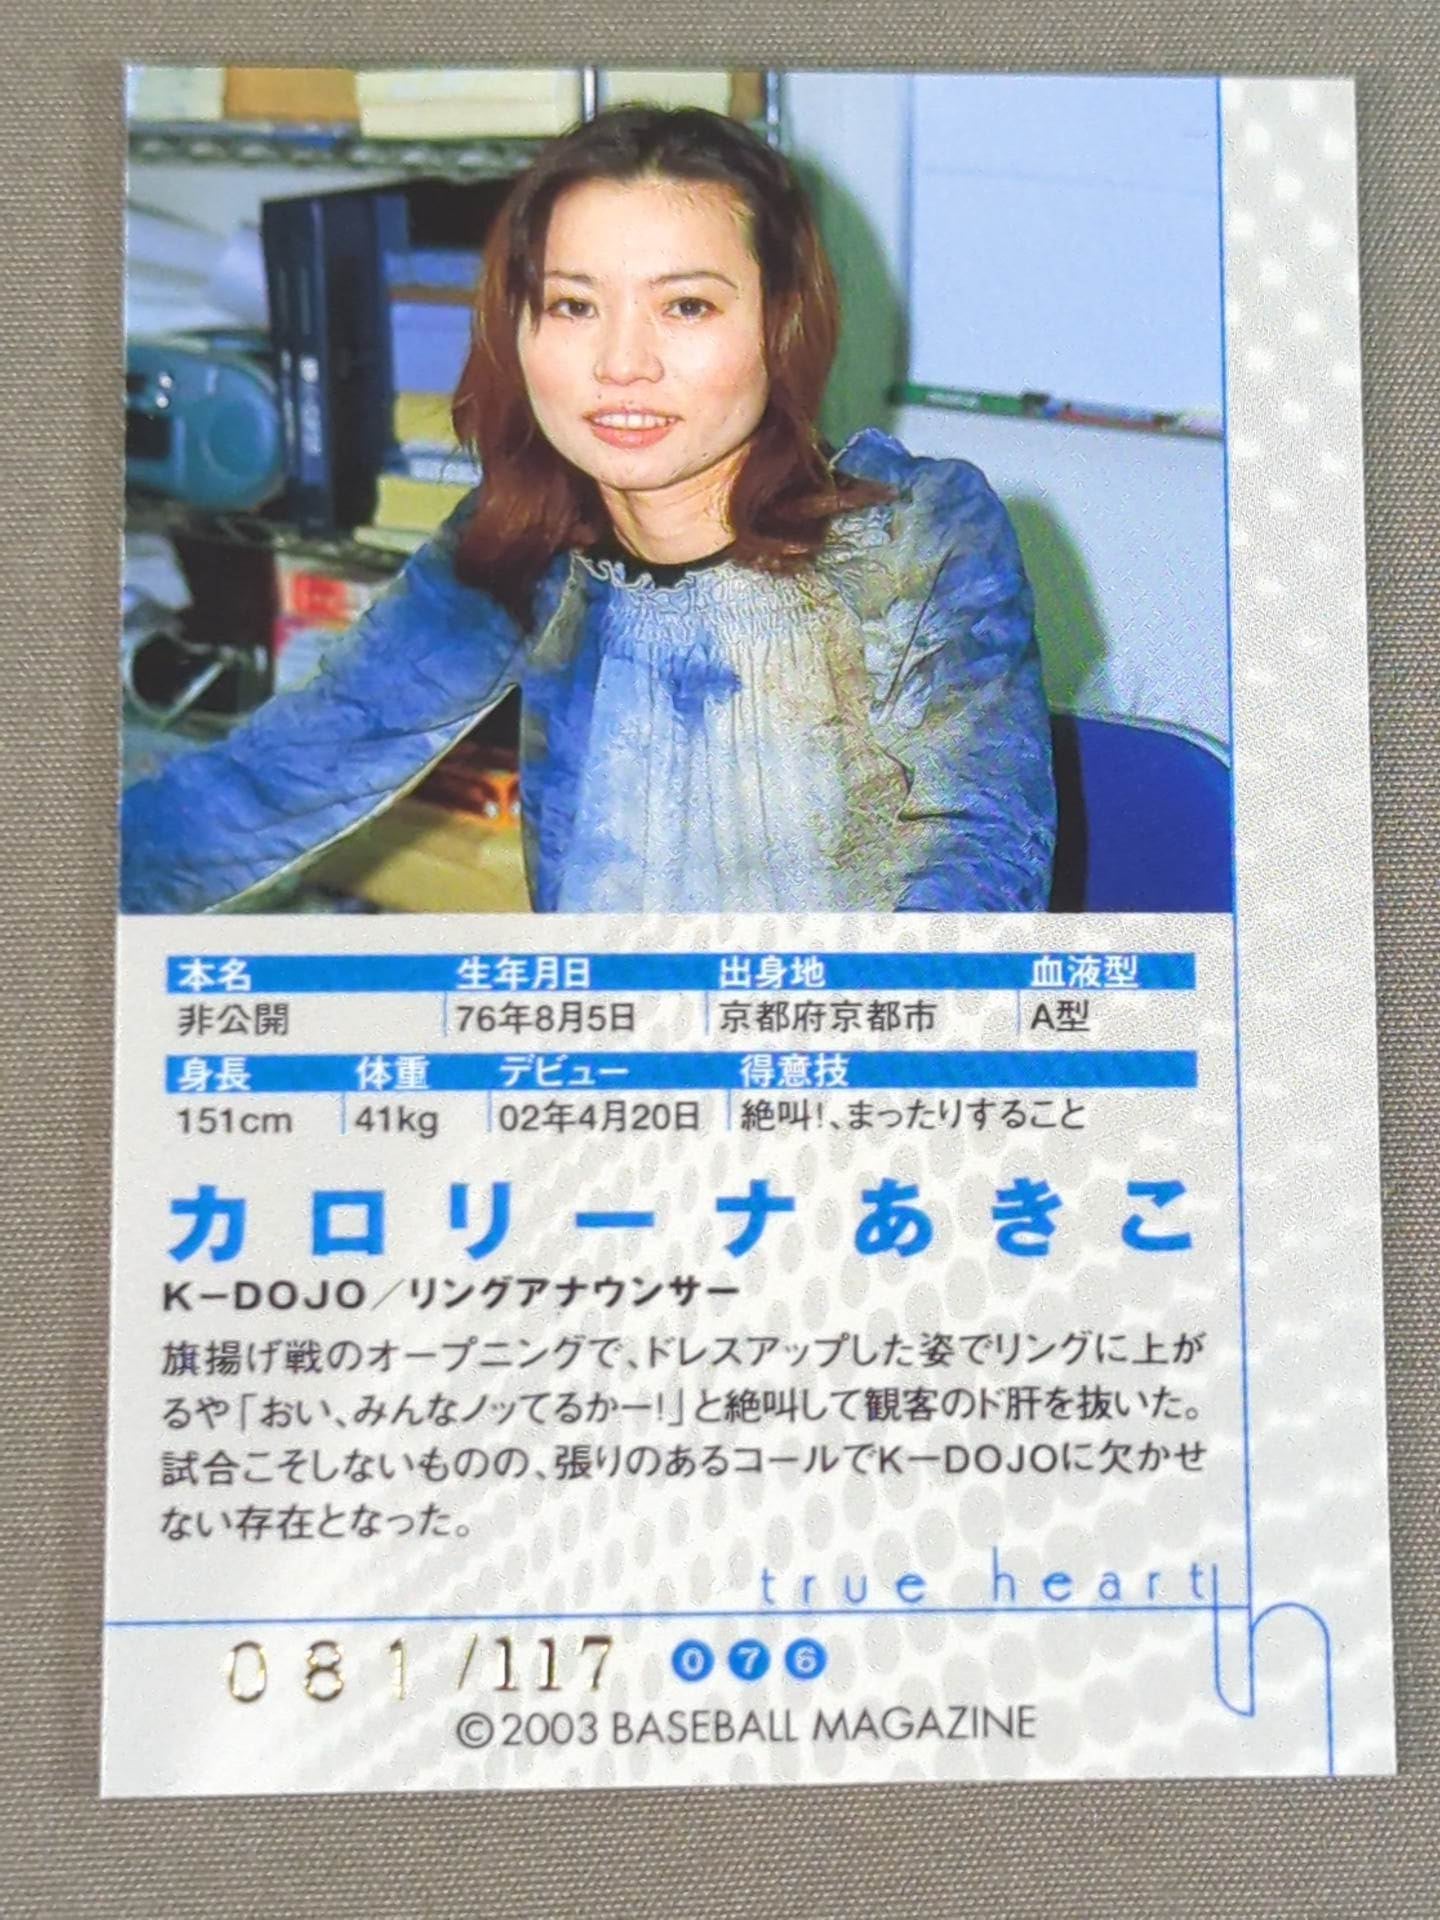 本名 生年月日 出身地 血液型
非公開 76年8月5日 京都府京都市 A型
身長 体重 デビュー 得意技
151cm 41kg 02年4月20日 絶叫!、まったりすること
カロリーナあきこ
K－DOJO／リングアナウンサー
旗揚げ戦のオープニングで、ドレスアップした姿でリングに上が
るや「おい、みんなノッてるかー!」と絶叫して観客のド肝を抜いた。
試合こそしないものの、張りのあるコールでK－DOJOに欠かせ
ない存在となった。
true heart
081/117 076
©2003 BASEBALL MAGAZINE